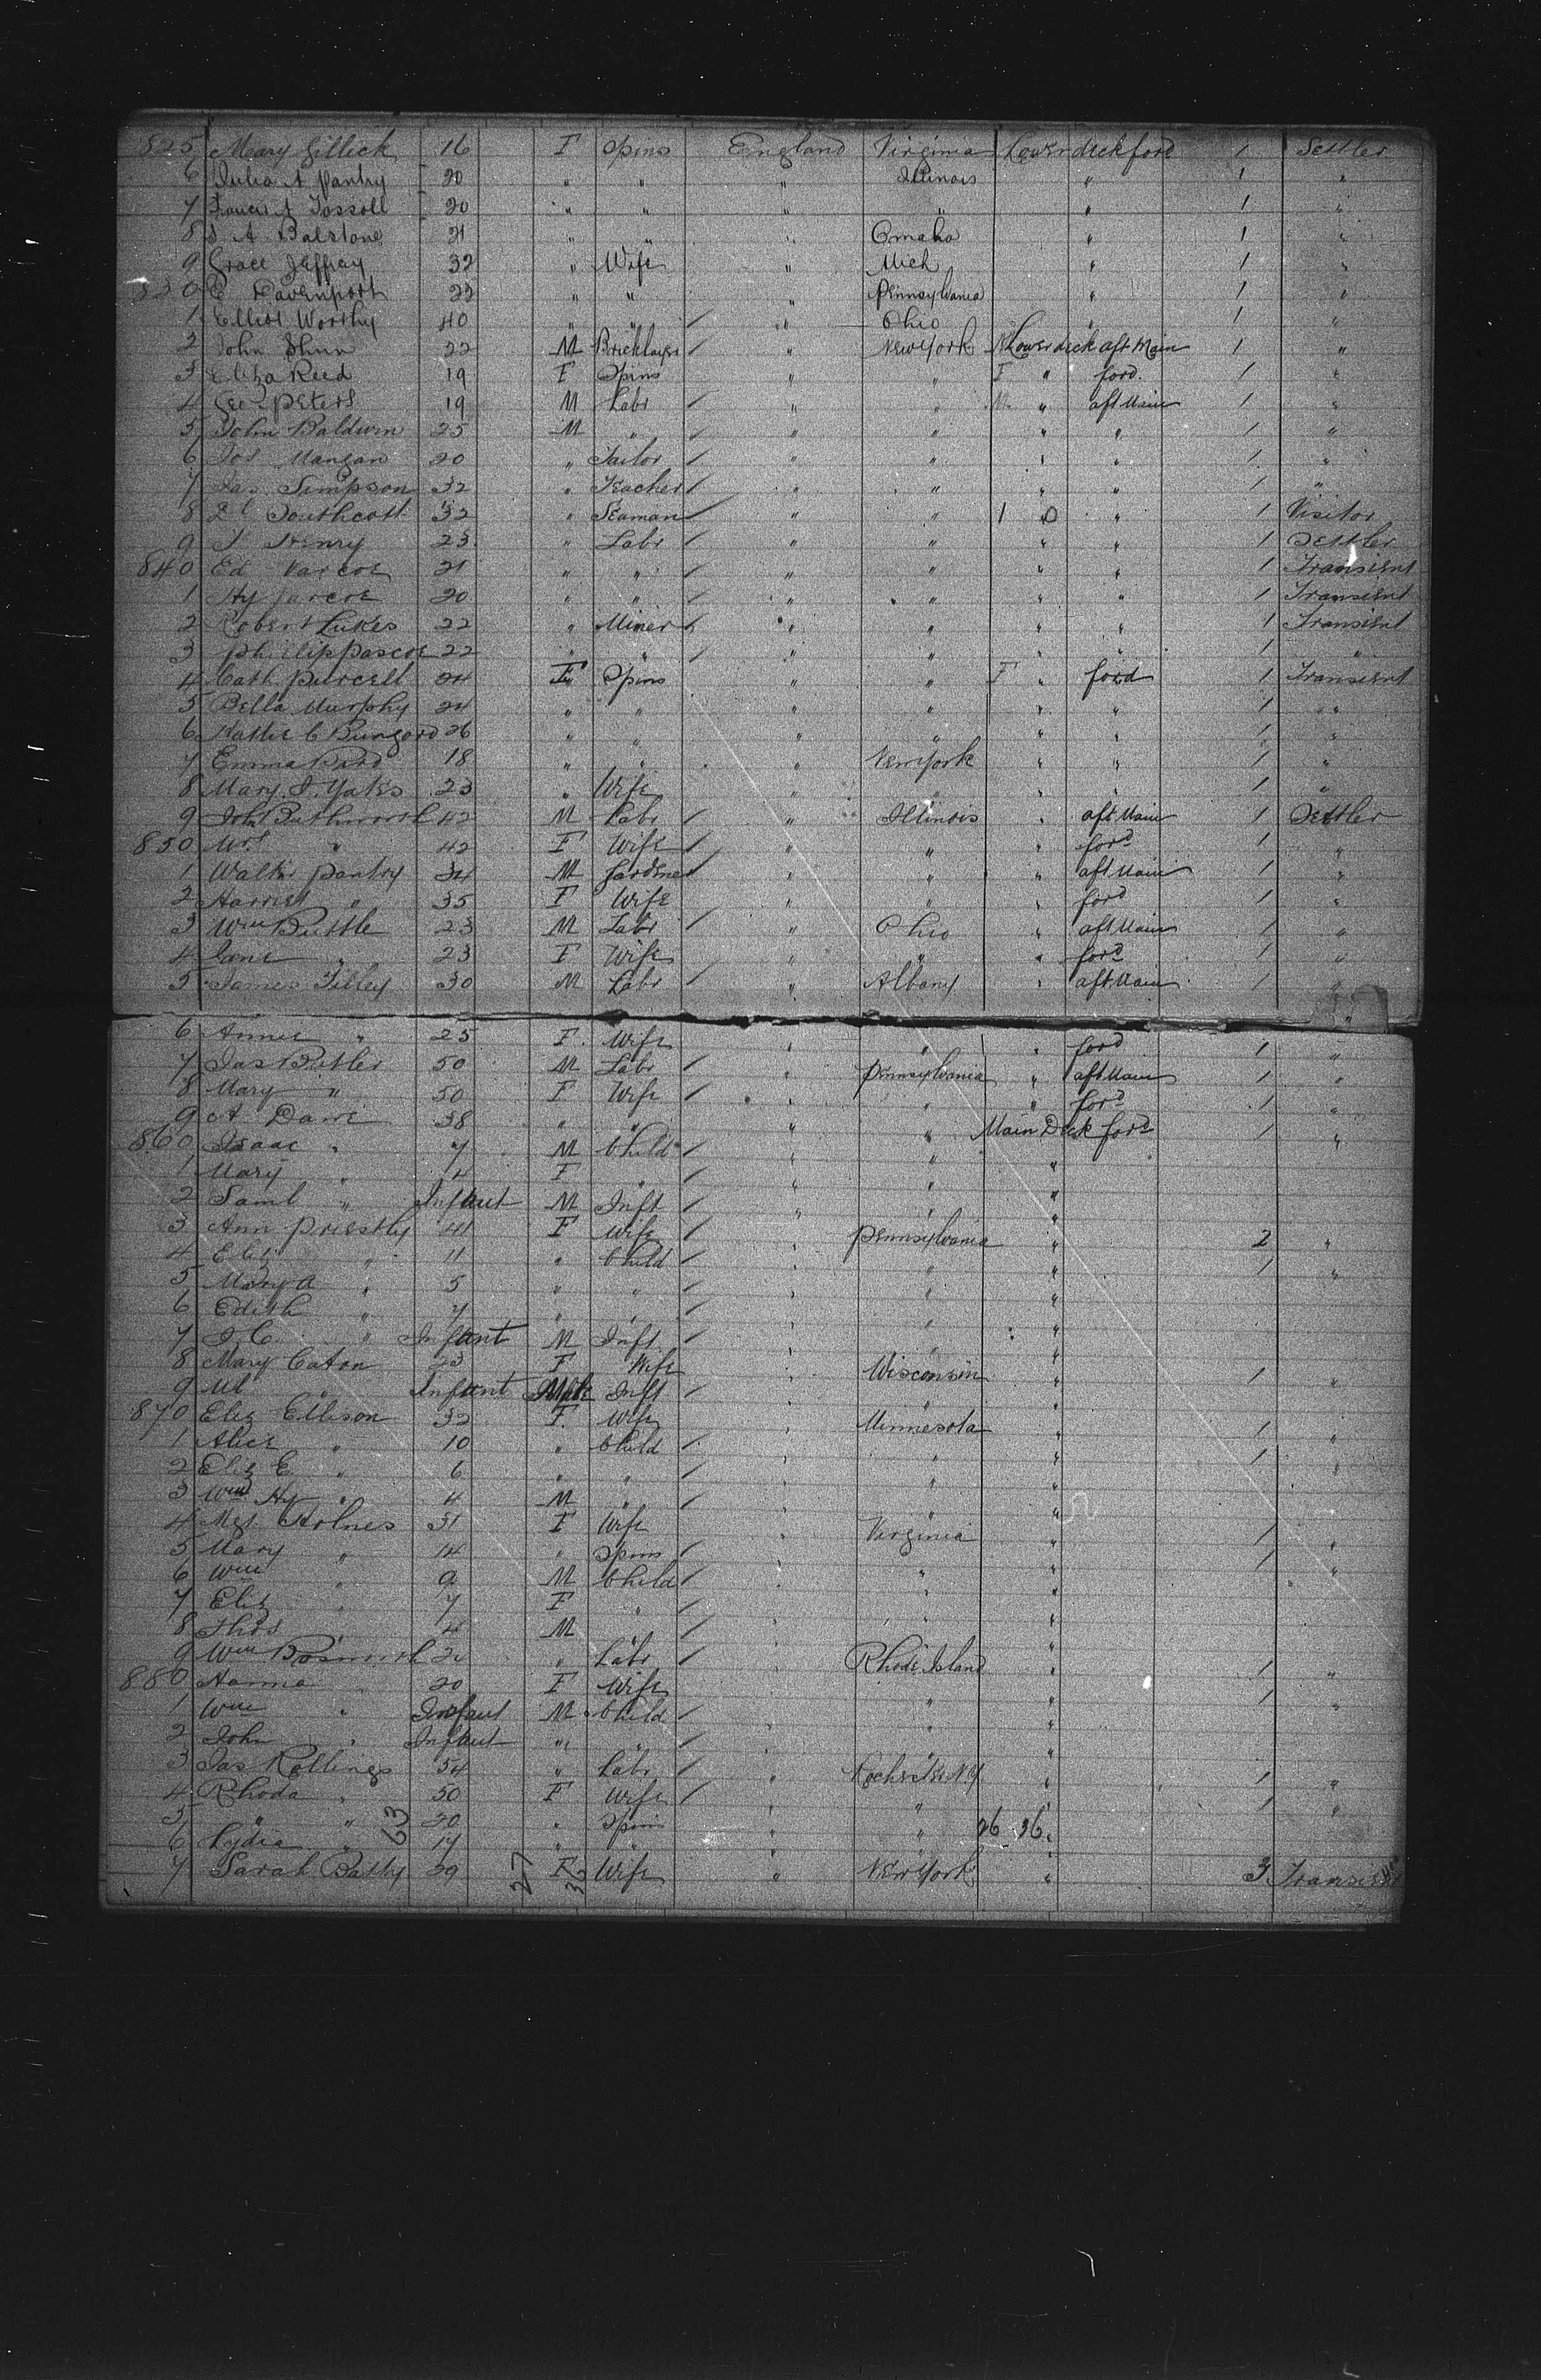 825 Mary Gillick 16 F Spins England Virginia Lower deck ford 1 Settler
6 Julia A Pantry 20 " " " Illinois " 1 "
7 Frances A Tossell 20 " " " " " 1 "
8 S A Balstone 21 " " " Omaha " 1 "
9 Grace Jeffray 32 " Wife " Mich " 1 "
830 E Davenport 22 " " " Pennsylvania " 1 "
1 Elliot Worthy 40 " " / " Ohio " 1 "
2 John Shun 22 M Bricklayer " New York M Lower deck aft Main 1 "
3 Eliza Reed 19 F Spins " " F " ford. 1 "
4 Geo Peters 19 M Labr / " " M " aft Main 1 "
5 John Baldwin 25 M " / " " " " 1 "
6 Jos Mangan 20 " Tailor / " " " " 1 "
7 Jas Simpson 32 " Teacher / " " " " 1 "
8 Southcott 32 " Seaman / " " " 1 Visitor
9 Henry 23 " Labr / " " " " 1 Settler
840 Ed Varcoe 21 " " / " " " " 1 Transient
1 Hy Jarcoe 20 " " / " " " " 1 Transient
2 Robert Lukes 22 " Miner / " " " " 1 Transient
3 Phillip Pascoe 22 " " / " " " " 1 "
4 Cath Purcell 24 F Spins " " F " ford 1 Transient
5 Bella Murphy 24 " " " " " " 1 "
6 Katie C Bungord 26 " " " " " " 1 "
7 Emma 18 " " " New York " " 1 "
8 Mary J. Yates 23 " Wife " " " " 1 "
9 Joh Buthworth 42 M Labr / " Illinois " aft Main 1 Settler
850 Mrs " 42 F Wife / " " " ford 1 "
1 Walter Pantry 34 M Gardener / " " " aft Main 1 "
2 Harriet " 35 F Wife " " " ford 1 "
3 Wm Buttle 23 M Labr / " Ohio " aft Main 1 "
4 Jane " 23 F Wife " " " ford 1 "
5 James Tilley 30 M Labr / " Albany " aft Main 1 "
6 Annie " 25 F Wife " " " ford 1 "
7 Jas Butler 50 M Labr / " Pennsylvania " aft Main 1 "
8 Mary " 50 F Wife / " " " ford 1 "
9 A. Davi 38 " " / " " Main Deck ford 1 "
860 Isaac " 7 M Child / " " "
1 Mary " 4 F " / " " "
2 Saml " Infant M Inft / " " "
3 Ann Priestly 41 F Wife / " Pennsylvania " 2 "
4 Eliz " 11 " Child / " " " 1 "
5 Mary A " 5 " " / " " "
6 Edith " 7 " " / " " "
7 J C " Infant M Inft / " " "
8 Mary Caton 23 F Wife " Wisconsin " 1 "
9 Ml " Infant Male Inft / " " "
870 Eliz Ellison 32 F. Wife " Minnesota " 1 "
1 Alice " 10 " Child / " " " 1 "
2 Eliz E " 6 " " " " "
3 Wm Hy " 4 M " " " "
4 Mgt Holnes 31 F Wife " Virginia " 1 "
5 Mary " 14 " Spins / " " " 1 "
6 Wm " 9 M Child / " " "
7 Eliz " 7 F " / " " "
8 Thos " 4 M " / " " "
9 Wm " Labr / " Rhode Island " 1 "
880 Hanna " 20 F Wife " " " 1 "
1 Wm " Infant M Child / " " "
2 John " Infant " " / " " "
3 Jas Rollings 54 " Labr / " Rochester NY " 1 "
4 Rhoda " 50 F Wife / " " " 1 "
5 " " 20 " Spins " " "
6 Lydia " 17 " " " " 26 26
7 Sarah Batty 29 F Wife " New York " 3 Transient
63
27